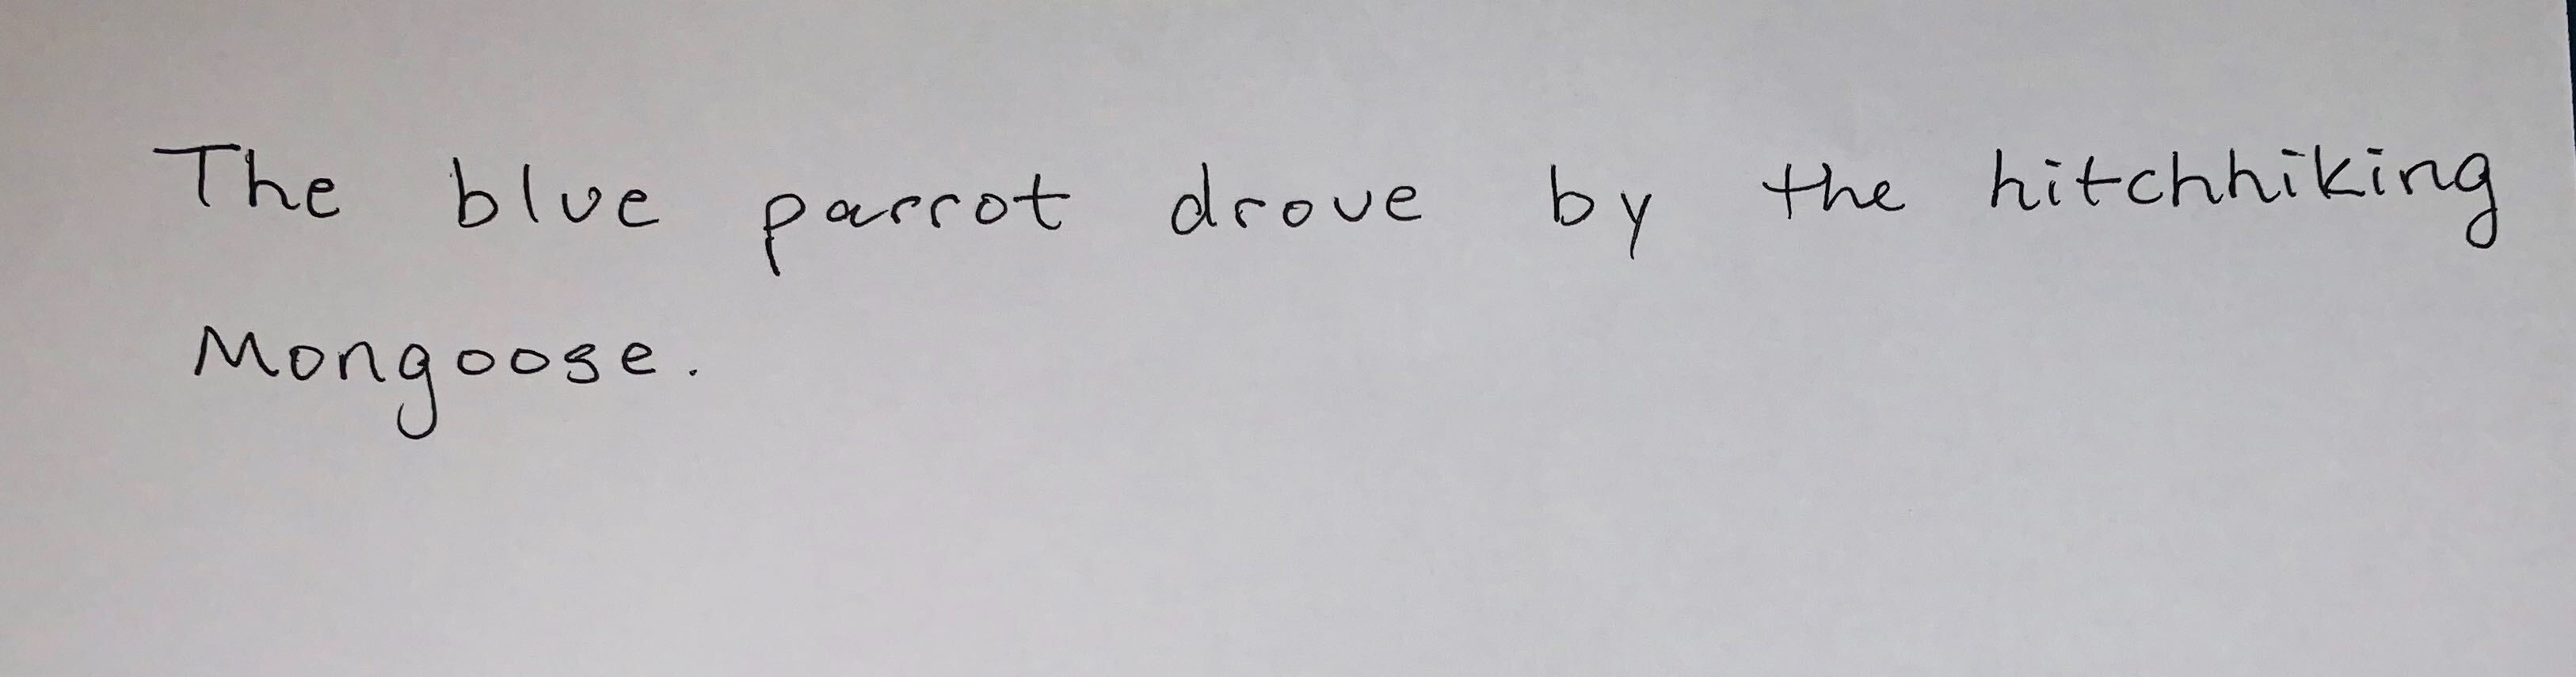 The blue parrot drove by the hitchhiking
Mongoose.